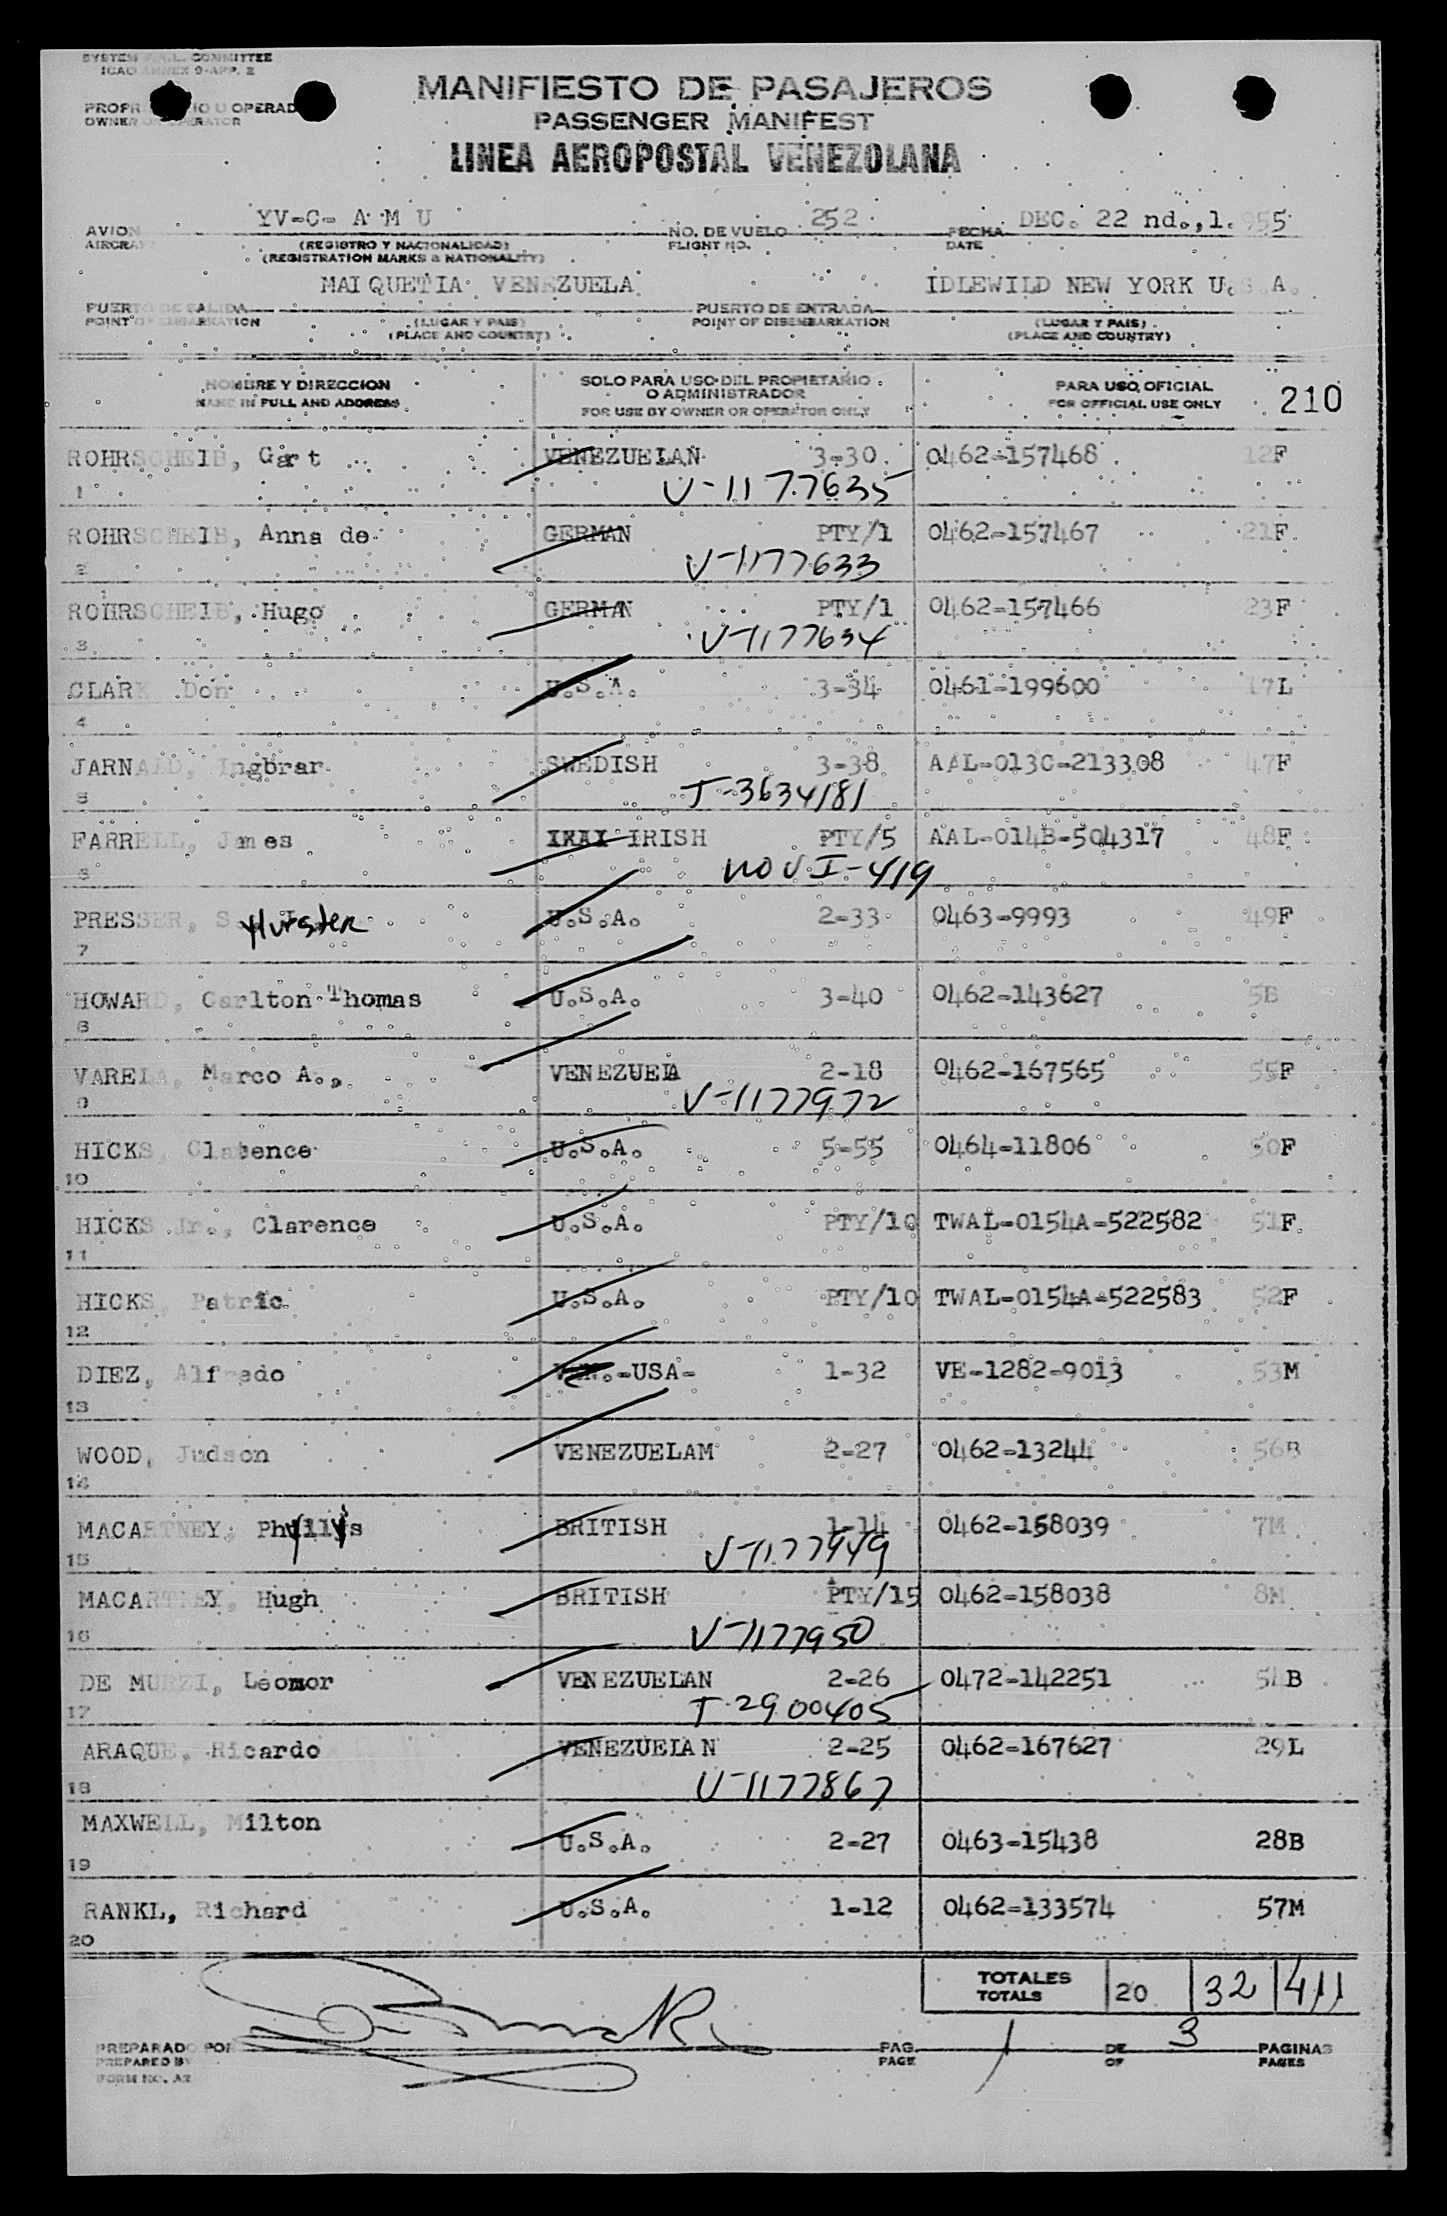 SYSTEM COMMITTEE
ICAO ANNEX 9-APP. 2
OPERAD
OWNER OR OPERATOR
MANIFIESTO DE PASAJEROS
PASSENGER MANIFEST
LINEA AEROPOSTAL VENEZOLANA
AVION YV-C- A M U NO. DE VUELO 252 FECHA DEC. 22 nd.,1.955
AIRCRAFT (REGISTRO Y NACIONALIDAD) FLIGHT NO. DATE
(REGISTRATION MARKS & NATIONALITY)
MAIQUETIA VENEZUELA IDLEWILD NEW YORK U.S.A.
PUERTO DE SALIDA PUERTO DE ENTRADA
POINT OF EMBARKATION (LUGAR Y PAIS) POINT OF DISEMBARKATION (LUGAR Y PAIS)
(PLACE AND COUNTRY) (PLACE AND COUNTRY)
NOMBRE Y DIRECCION SOLO PARA USO DEL PROPIETARIO PARA USO OFICIAL
O ADMINISTRADOR
NAME IN FULL AND ADDRESS FOR USE BY OWNER OR OPERATOR ONLY FOR OFFICIAL USE ONLY 210
ROHRSCHEIB, Gert VENEZUELAN 3-30 0462-157468 12F
1 V-1177635
ROHRSCHEIB, Anna de GERMAN PTY/1 0462-157467 21F
2 V-1177633
ROHRSCHEIB, Hugo GERMAN PTY/1 0462-157466 23F
3 V-1177634
CLARK Don U.S.A. 3-34 0461-199600 17L
4
JARNALD, Ingbrar SWEDISH 3-38 AAL-013C-213308 47F
5 T-3634181
FARRELL, James IRISH PTY/5 AAL-014B-504317 48F
6 NOV I-419
PRESSER, S. U.S.A. 2-33 0463-9993 49F
7
HOWARD, Carlton Thomas U.S.A. 3-40 0462-143627 5B
8
VARELA, Marco A., VENEZUELA 2-18 0462-167565 55F
9 V-1177972
HICKS, Clatence U.S.A. 5-55 0464-11806 50F
10
HICKS Jr., Clarence U.S.A. PTY/10 TWAL-0154A-522582 51F
11
HICKS, Patric U.S.A. PTY/10 TWAL-0154A-522583 52F
12
DIEZ, Alfredo -USA- 1-32 VE-1282-9013 53M
13
WOOD, Judson VENEZUELAM 2-27 0462-13244 56B
14
MACARTNEY, Phyllis BRITISH 1-14 0462-158039 7M
15 V-1177949
MACARTNEY, Hugh BRITISH PTY/15 0462-158038 8M
16 V-1177950
DE MURZI, Leonor VENEZUELAN 2-26 0472-142251 54B
17 T-2900405
ARAQUE, Ricardo VENEZUELAN 2-25 0462-167627 29L
18 V-1177867
MAXWELL, Milton
U.S.A. 2-27 0463-15438 28B
19
RANKL, Richard U.S.A. 1-12 0462-133574 57M
20
TOTALES
TOTALS 20 32 411
PREPARADO POR PAG. 1 DE 3 PAGINAS
PREPARED BY PAGE OF PAGES
FORM NO. A2